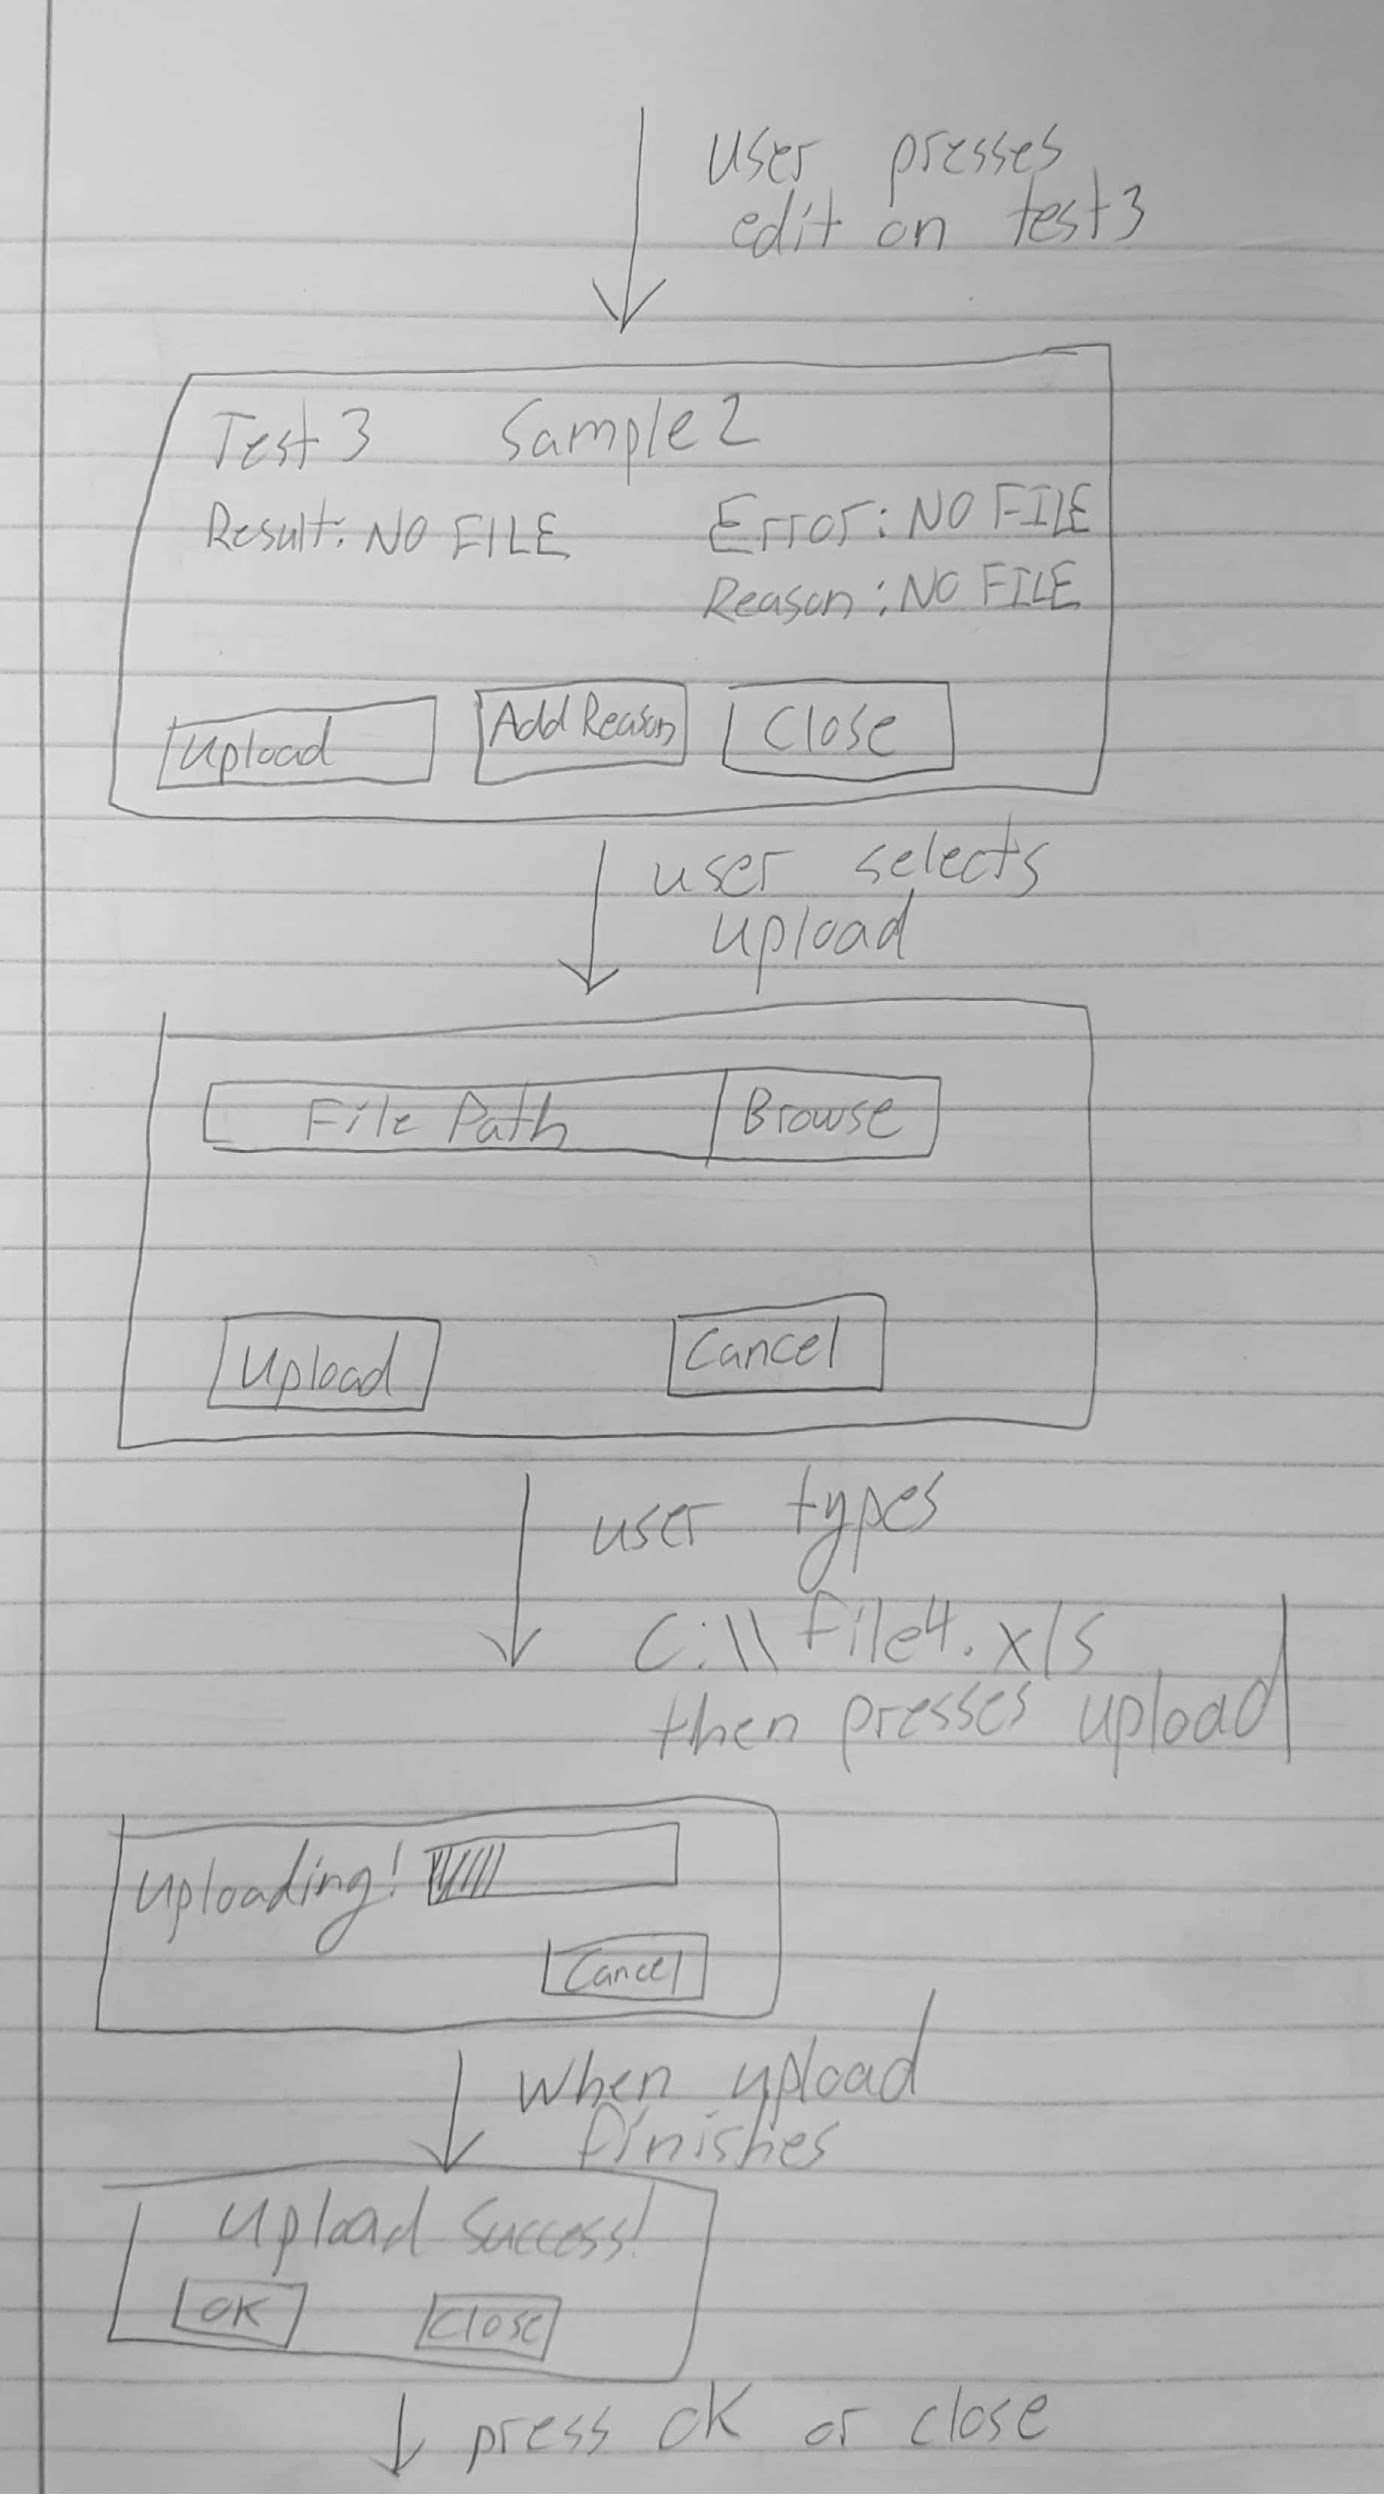 user presses
edit on test3
Test3 Sample2
Result: NO FILE Error: NO FILE
Reason: NO FILE
Upload Add Reason Close
user selects
upload
File Path Browse
Upload Cancel
user types
C:\\file4.xls
then presses upload
Uploading!
Cancel
when upload
finishes
Upload Success!
OK Close
press OK or close